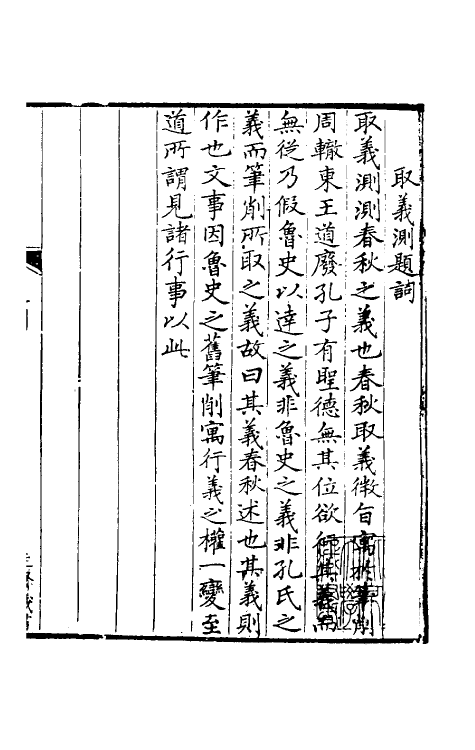 取義測題詞
取義測測春秋之義也春秋取義微旨寓於筆削
周轍東王道廢孔子有聖德無其位欲行其義而
無從乃假魯史以達之義非魯史之義非孔氏之
義而筆削所取之義故曰其義春秋述也其義則
作也文事因魯史之舊筆削寓行義之權一變至
道所謂見諸行事以此